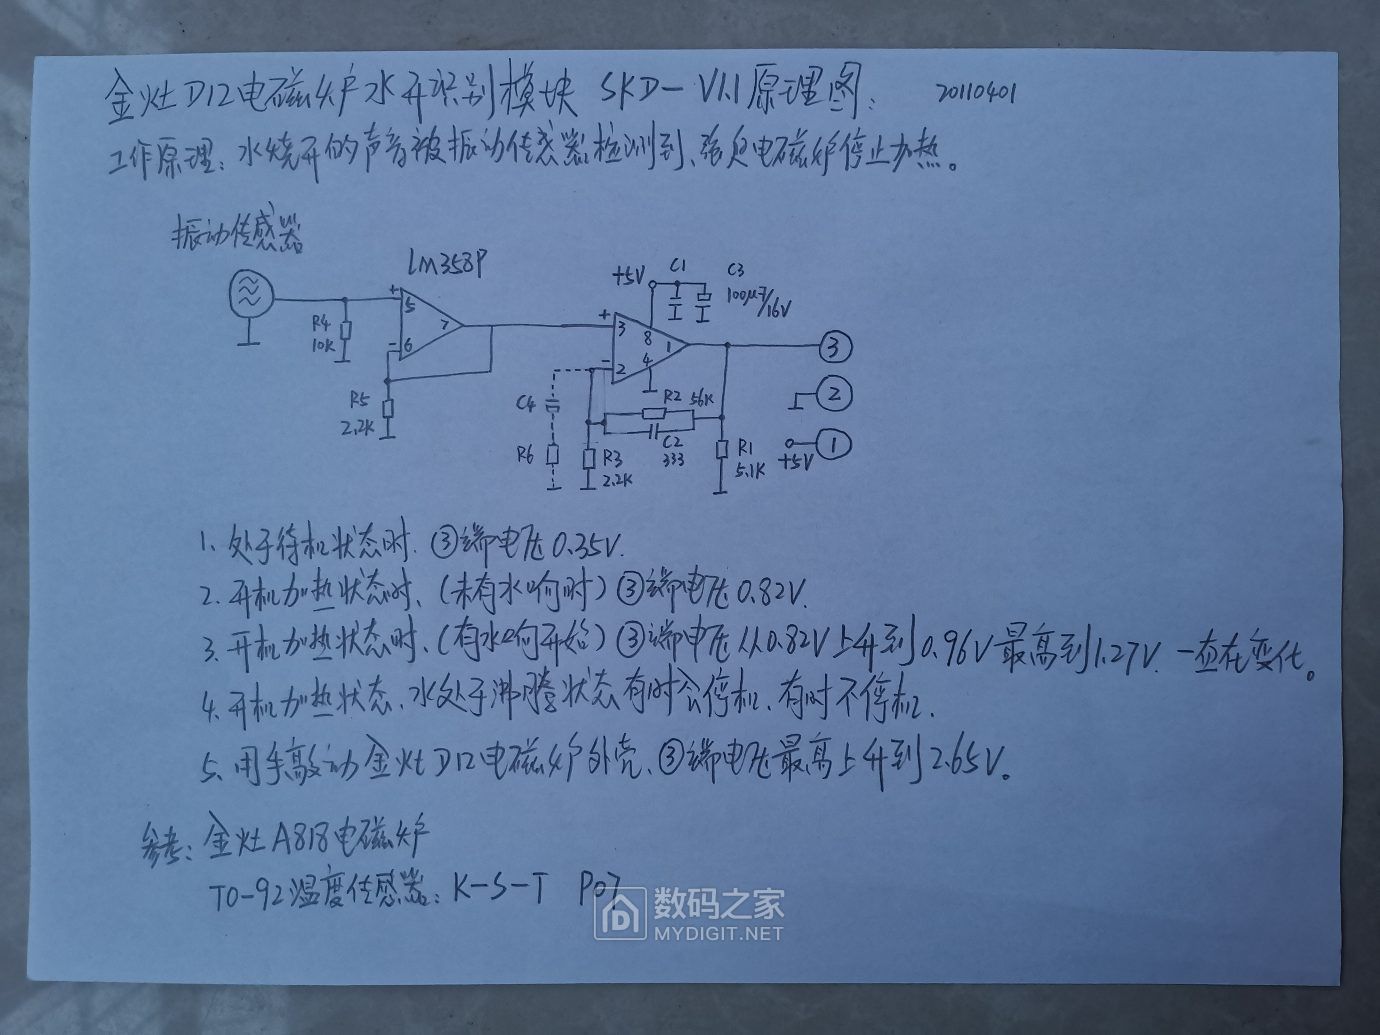 金灶D12电磁炉水开识别模块 SKD-V1.1原理图： 20110401
工作原理：水烧开的声音被振动传感器检测到、强迫电磁炉停止加热。
振动传感器
LM358P
+5V
C1
C3
100μF/16V
+
5
7
-
6
R4
10K
R5
2.2K
+
3
8
1
-
2
4
③
②
①
+5V
C4
R6
R2 56K
C2
333
R3
2.2K
R1
5.1K
1. 处于待机状态时. ③端电压0.35V.
2. 开机加热状态时、(未有水响时) ③端电压0.82V.
3. 开机加热状态时、(有水响开始) ③端电压从0.82V上升到0.96V最高到1.27V. 一直在变化。
4. 开机加热状态、水处于沸腾状态有时会停机、有时不停机.
5. 用手敲动金灶D12电磁炉外壳、③端电压最高上升到2.65V。
参考：金灶A818电磁炉
TO-92温度传感器：K-S-T P07
数码之家
MYDIGIT.NET